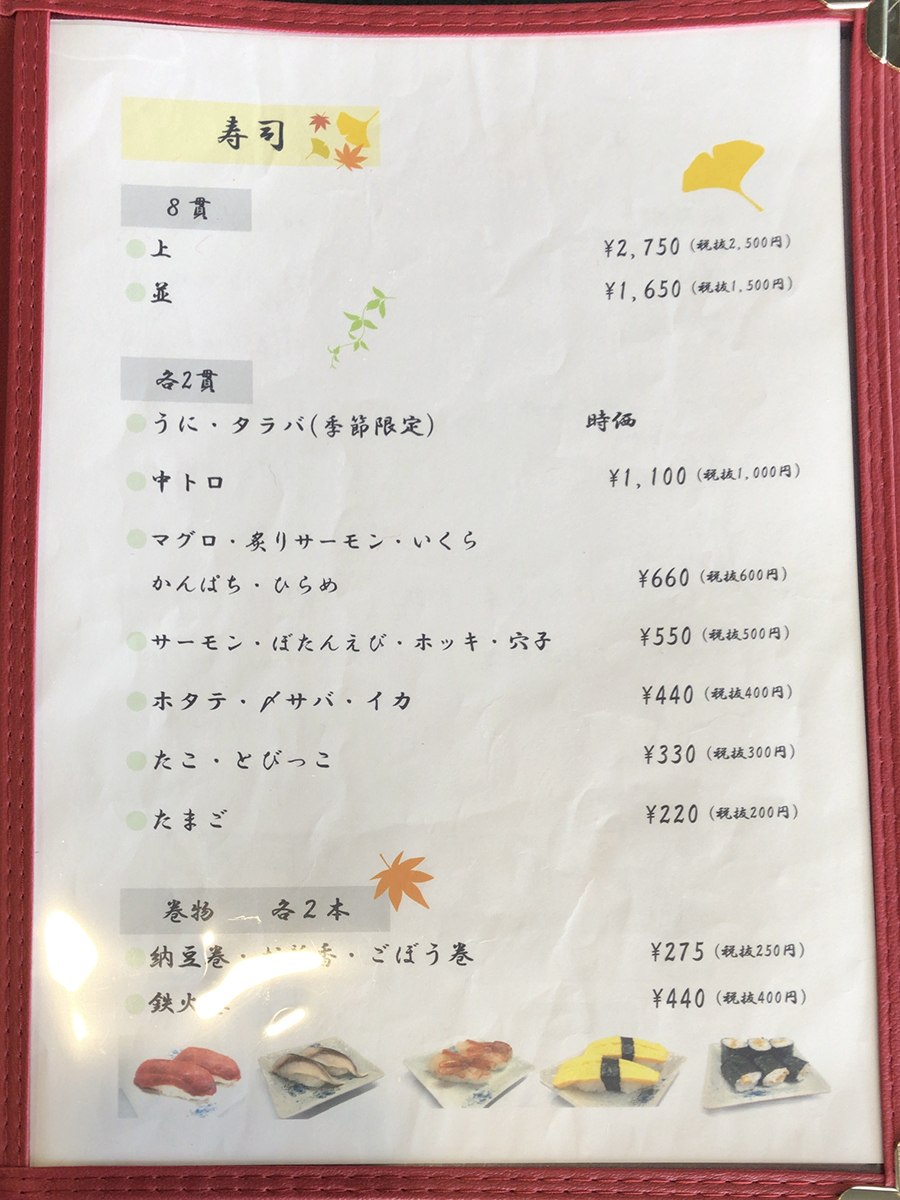 寿司
8貫
上 ¥2,750(税抜2,500円)
並 ¥1,650(税抜1,500円)
各2貫
うに・タラバ(季節限定) 時価
中トロ ¥1,100(税抜1,000円)
マグロ・炙りサーモン・いくら
かんぱち・ひらめ ¥660(税抜600円)
サーモン・ぼたんえび・ホッキ・穴子 ¥550(税抜500円)
ホタテ・〆サバ・イカ ¥440(税抜400円)
たこ・とびっこ ¥330(税抜300円)
たまご ¥220(税抜200円)
巻物 各2本
納豆巻・香・ごぼう巻 ¥275(税抜250円)
鉄火 ¥440(税抜400円)